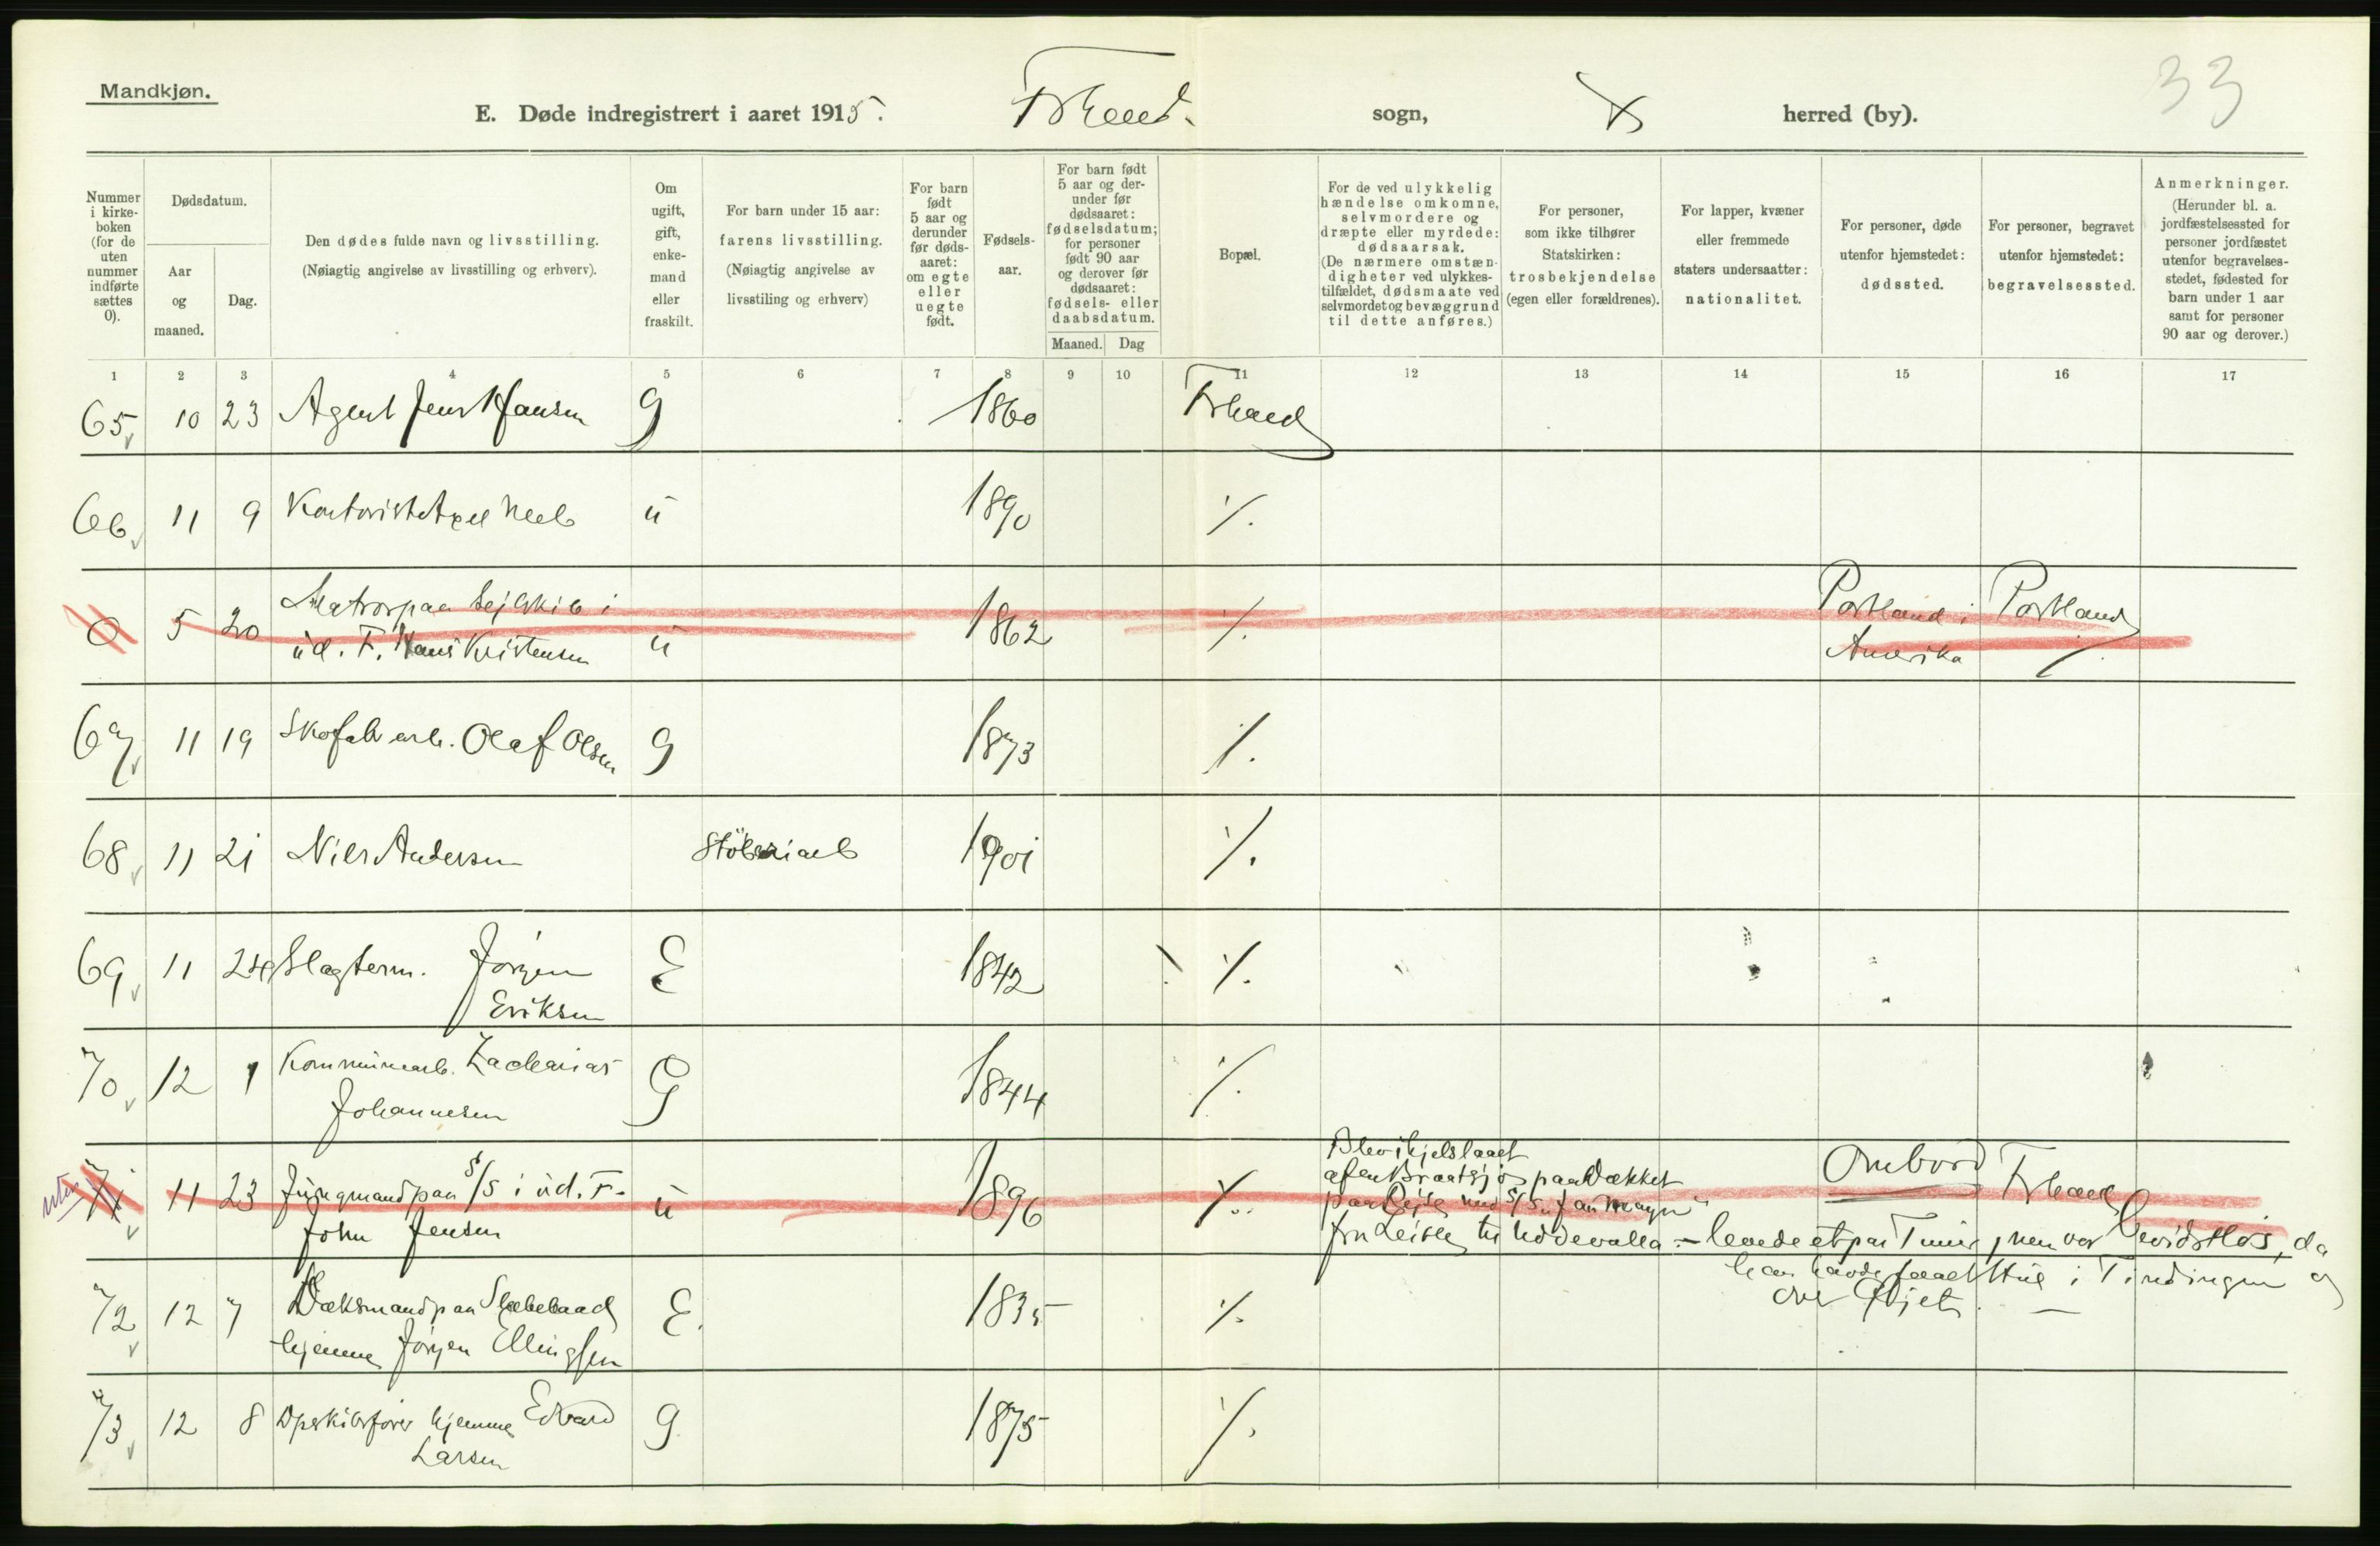 33
Mandkjøn.
E. Døde indregistrert i aaret 1915. Frhald. sogn, herred (by).
Nummer i kirkeboken (for de uten nummer indførte sættes 0).
Dødsdatum.
Aar og maaned.
Dag.
Den dødes fulde navn og livsstilling.
(Nøiagtig angivelse av livsstilling og erhverv).
Om ugift, gift, enkemand eller fraskilt.
For barn under 15 aar: farens livsstilling. (Nøiagtig angivelse av livsstiling og erhverv)
For barn født 5 aar og derunder før dødsaaret: om egte eller uegte født.
Fødselsaar.
For barn født 5 aar og derunder før dødsaaret: fødselsdatum; for personer født 90 aar og derover før dødsaaret: fødsels- eller daabsdatum.
Maaned. Dag
Bopæl.
For de ved ulykkelig hændelse omkomne, selvmordere og dræpte eller myrdede: dødsaarsak. (De nærmere omstændigheter ved ulykkestilfældet, dødsmaate ved selvmordet og bevæggrund til dette anføres.)
For personer, som ikke tilhører Statskirken: trosbekjendelse (egen eller forældrenes).
For lapper, kvæner eller fremmede staters undersaatter: nationalitet.
For personer, døde utenfor hjemstedet: dødssted.
For personer, begravet utenfor hjemstedet: begravelsessted.
Anmerkninger. (Herunder bl. a. jordfæstelsessted for personer jordfæstet utenfor begravelsesstedet, fødested for barn under 1 aar samt for personer 90 aar og derover.)
1 2 3 4 5 6 7 8 9 10 11 12 13 14 15 16 17
65 10 23 Agent Jens Hansen g 1860 Frhald
66 11 9 Kontorist Axel u 1890 ./.
0 5 20 Matros paa Sejlskib i u 1862 ./. Portland i Portland
ud. F. Hans Kristensen Amerika
67 11 19 Skofabarb. Olaf Olsen g 1873 ./.
68 11 21 Nils Andersen Stöberiarb 1901 ./.
69 11 24 Slagterm. Jörgen E 1842 ./.
Eriksen
70 12 1 Kommunearb. Zacharias G 1844 ./.
Johannesen
71 11 23 Jungmand paa S/S i ud. F. u 1896 ./. Blev ihjelslaaet Ombord Frhald
John Jensen
af en Braatsjö paa Dækket
paa Rejse med S/S "Jan Mayn"
fra Leith til Uddevalla - levede et par Timer, men var bevidstløs, da
han havde faaet Hul i Tindingen og
over Øjet. —
72 12 7 Dæksmand paa Slæbebaad E. 1835 ./.
hjemme Jörgen Ellingsen
73 12 8 Dpskibsförer hjemme Edvard g 1875 ./.
Larsen